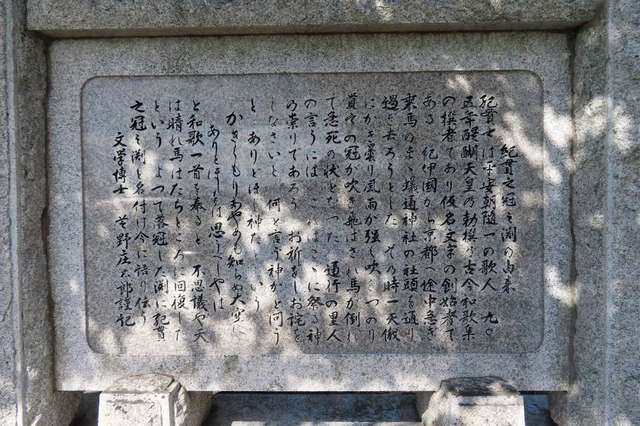 紀貫之冠之渕の由来
紀貫之は平安朝随一の歌人 九〇
五年醍醐天皇の勅撰 古今和歌集
の撰者であり仮名文学の創始者で
ある 紀伊国から京都へ途中急ぎ
乗馬のまゝ蟻通神社の社頭を通り
過ぎ去ろうとした その時一天俄
にかき曇り風雨が強く吹きつのり
貫之の冠が吹き飛ばされ馬が倒れ
て悪死の状となった 通行の里人
の言うには これはここに祭る神
の祟りであろう お祈りをしお詫を
しなさいと 何と言う神かと問う
と ありとほし神だ という
かきくもりあやめも知らぬ大空に
ありとほしをば思ふべしやは
と和歌一首を奏ると 不思議や天
は晴れ馬はたちどころに回復した
という よって落冠した渕に紀貫
之冠之渕と名付け今に語り伝う
文学博士